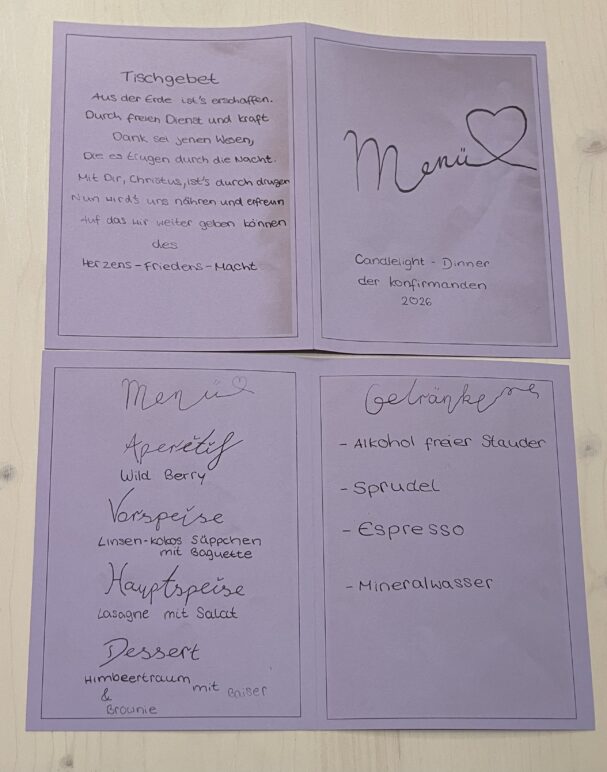 Tischgebet
Aus der Erde ist's erschaffen.
Durch freien Dienst und kraft
Dank sei jenen Wesen,
Die es trugen durch die Nacht.
Mit Dir, Christus, ist's durch drugen
Nun wird's uns nähren und erfreun
Auf das wir weiter geben können
des
Herzens-Friedens-Macht
Menü
Candlelight - Dinner
der Konfirmanden
2026
Menü
Aperetif
Wild Berry
Vorspeise
Linsen-Kokos Süppchen
mit Baguette
Hauptspeise
Lasagne mit Salat
Dessert
Himbeertraum mit Baiser
&
Brownie
Getränke
- Alkohol freier Stauder
- Sprudel
- Espresso
- Mineralwasser